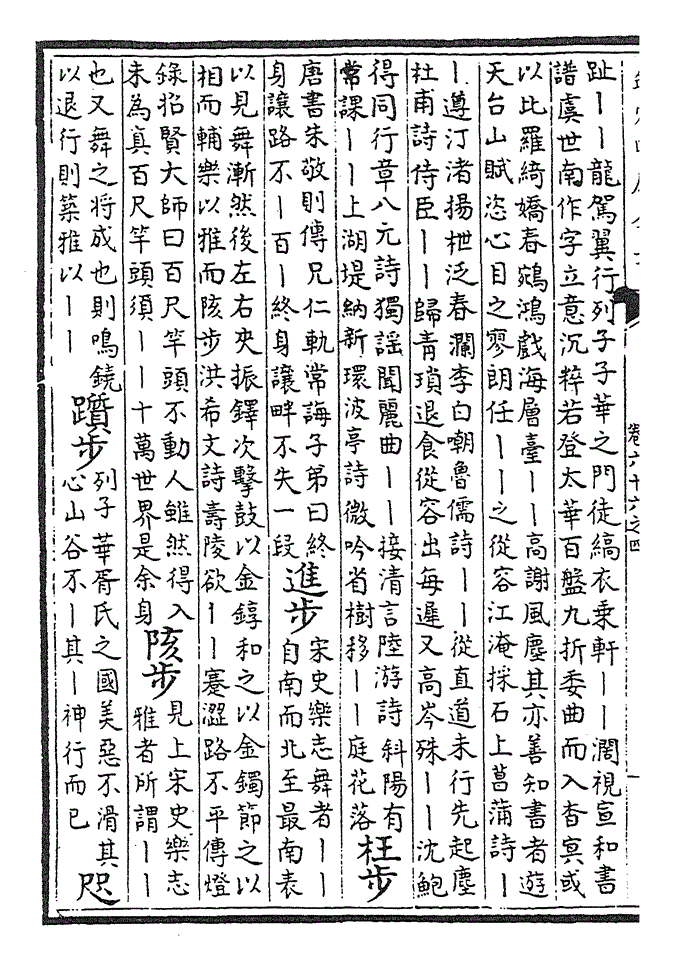 卷六十六之四
趾丨丨龍駕翼行列子子華之門徒縞衣乘軒丨丨濶視宣和書
譜虞世南作字立意沉粹若登太華百盤九折委曲而入杳冥或
以比羅綺嬌春鵷鴻戲海層臺丨丨高謝風塵其亦善知書者遊
天台山賦恣心目之寥朗任丨丨之從容江淹採石上菖蒲詩丨
丨遵汀渚揚枻泛春瀾李白嘲魯儒詩丨丨從直道未行先起塵
杜甫詩侍臣丨丨歸青瑣退食從容出每遲又高岑殊丨丨沈鮑
得同行章八元詩獨謡聞麗曲丨丨接清言陸游詩斜陽有
常課丨丨上湖堤納新環波亭詩微吟省樹移丨丨庭花落
枉步
唐書朱敬則傳兄仁軌常誨子弟曰終
身讓路不丨百丨終身讓畔不失一段
進步
宋史樂志舞者丨丨
自南而北至最南表
以見舞漸然後左右夾振鐸次擊鼓以金錞和之以金鐲節之以
相而輔樂以雅而陔步洪希文詩壽陵欲丨丨蹇澀路不平傳燈
録招賢大師曰百尺竿頭不動人雖然得入
未為真百尺竿頭須丨丨十萬世界是余身
陔步
見上宋史樂志
雅者所謂丨丨
也又舞之将成也則鳴鐃
以退行則築雅以丨丨
躓步
列子華胥氏之國美惡不滑其
心山谷不丨其丨神行而已
咫